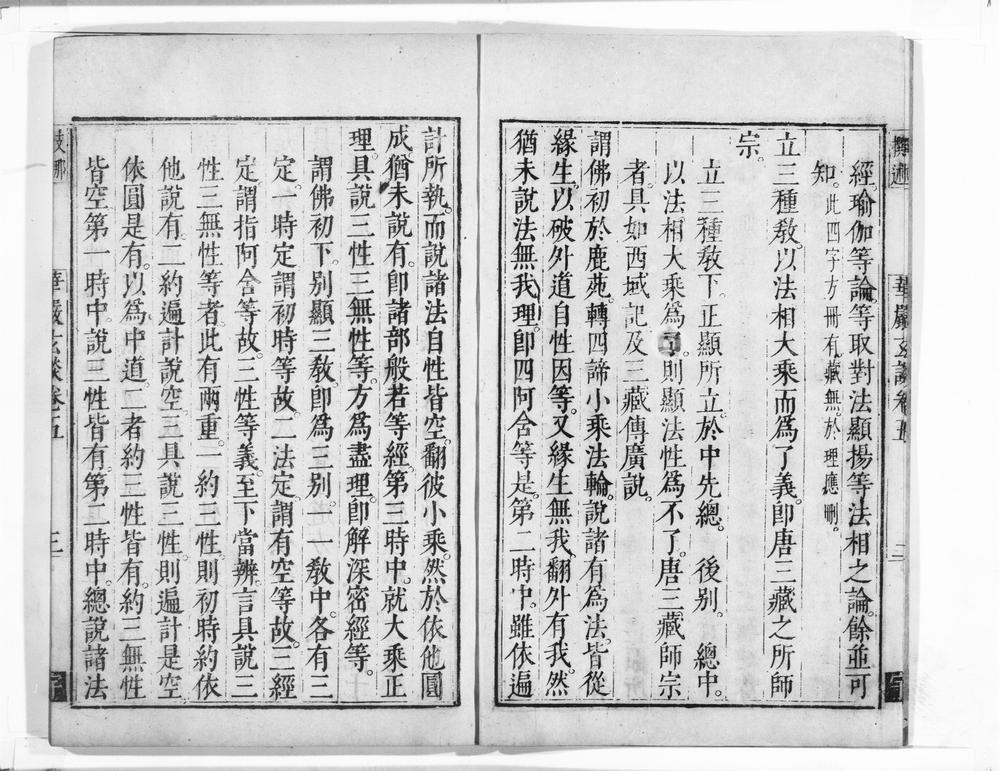 經瑜伽等論等取對法顯揚等法相之論。餘並可
知。此四字方冊有藏無。於理應刪。
立三種敎。以法相大乘而爲了義。卽唐三藏之所師
宗。
立三種敎下。正顯所立。於中先總。後別。總中。
以法相大乘爲了。則顯法性爲不了。唐三藏師宗
者。具如西域記及三藏傳廣說。
謂佛初於鹿苑。轉四諦小乘法輪。說諸有爲法。皆從
緣生。以破外道自性因等。又緣生無我。翻外有我。然
猶未說法無我理。卽四阿含等是。第二時中。雖依遍
計所執。而說諸法自性皆空。翻彼小乘。然於依他圓
成猶未說有。卽諸部般若等經。第三時中。就大乘正
理。具說三性三無性等。方爲盡理。卽解深密經等。
謂佛初下。別顯三敎。卽爲三別。一敎中。各有三
定。一時定。謂初時等故。二法定。謂有空等故。三經
定。謂指阿含等故。三性等義。至下當辨。言具說三
性三無性等者。此有兩重。一約三性。則初時約依
他說有。二約遍計說空。三具說三性。則遍計是空
依圓是有。以爲中道。二者約三性皆有。約三無性
皆空。第一時中。說三性皆有。第二時中。總說諸法
華嚴玄談卷五
二
華嚴玄談卷五
三